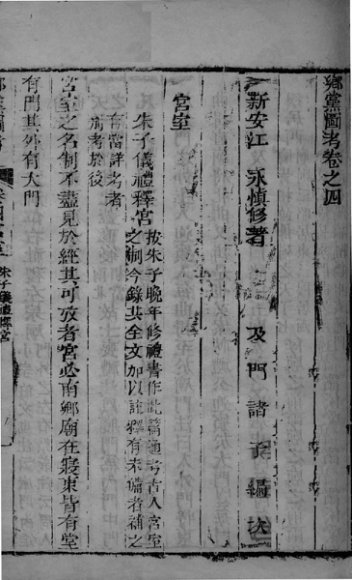 鄉黨圖考卷之四
新安江 永慎修著 及門諸子編次
宮室
朱子儀禮釋宮 按朱子晚年修禮書作此篇通考古人宮室
之制今錄其全文加以註釋有未備者補之
有當詳考者
俻考於後
宮室之名制不盡見於經其可攷者宮必南鄉廟在寢東皆有堂
有門其外有大門